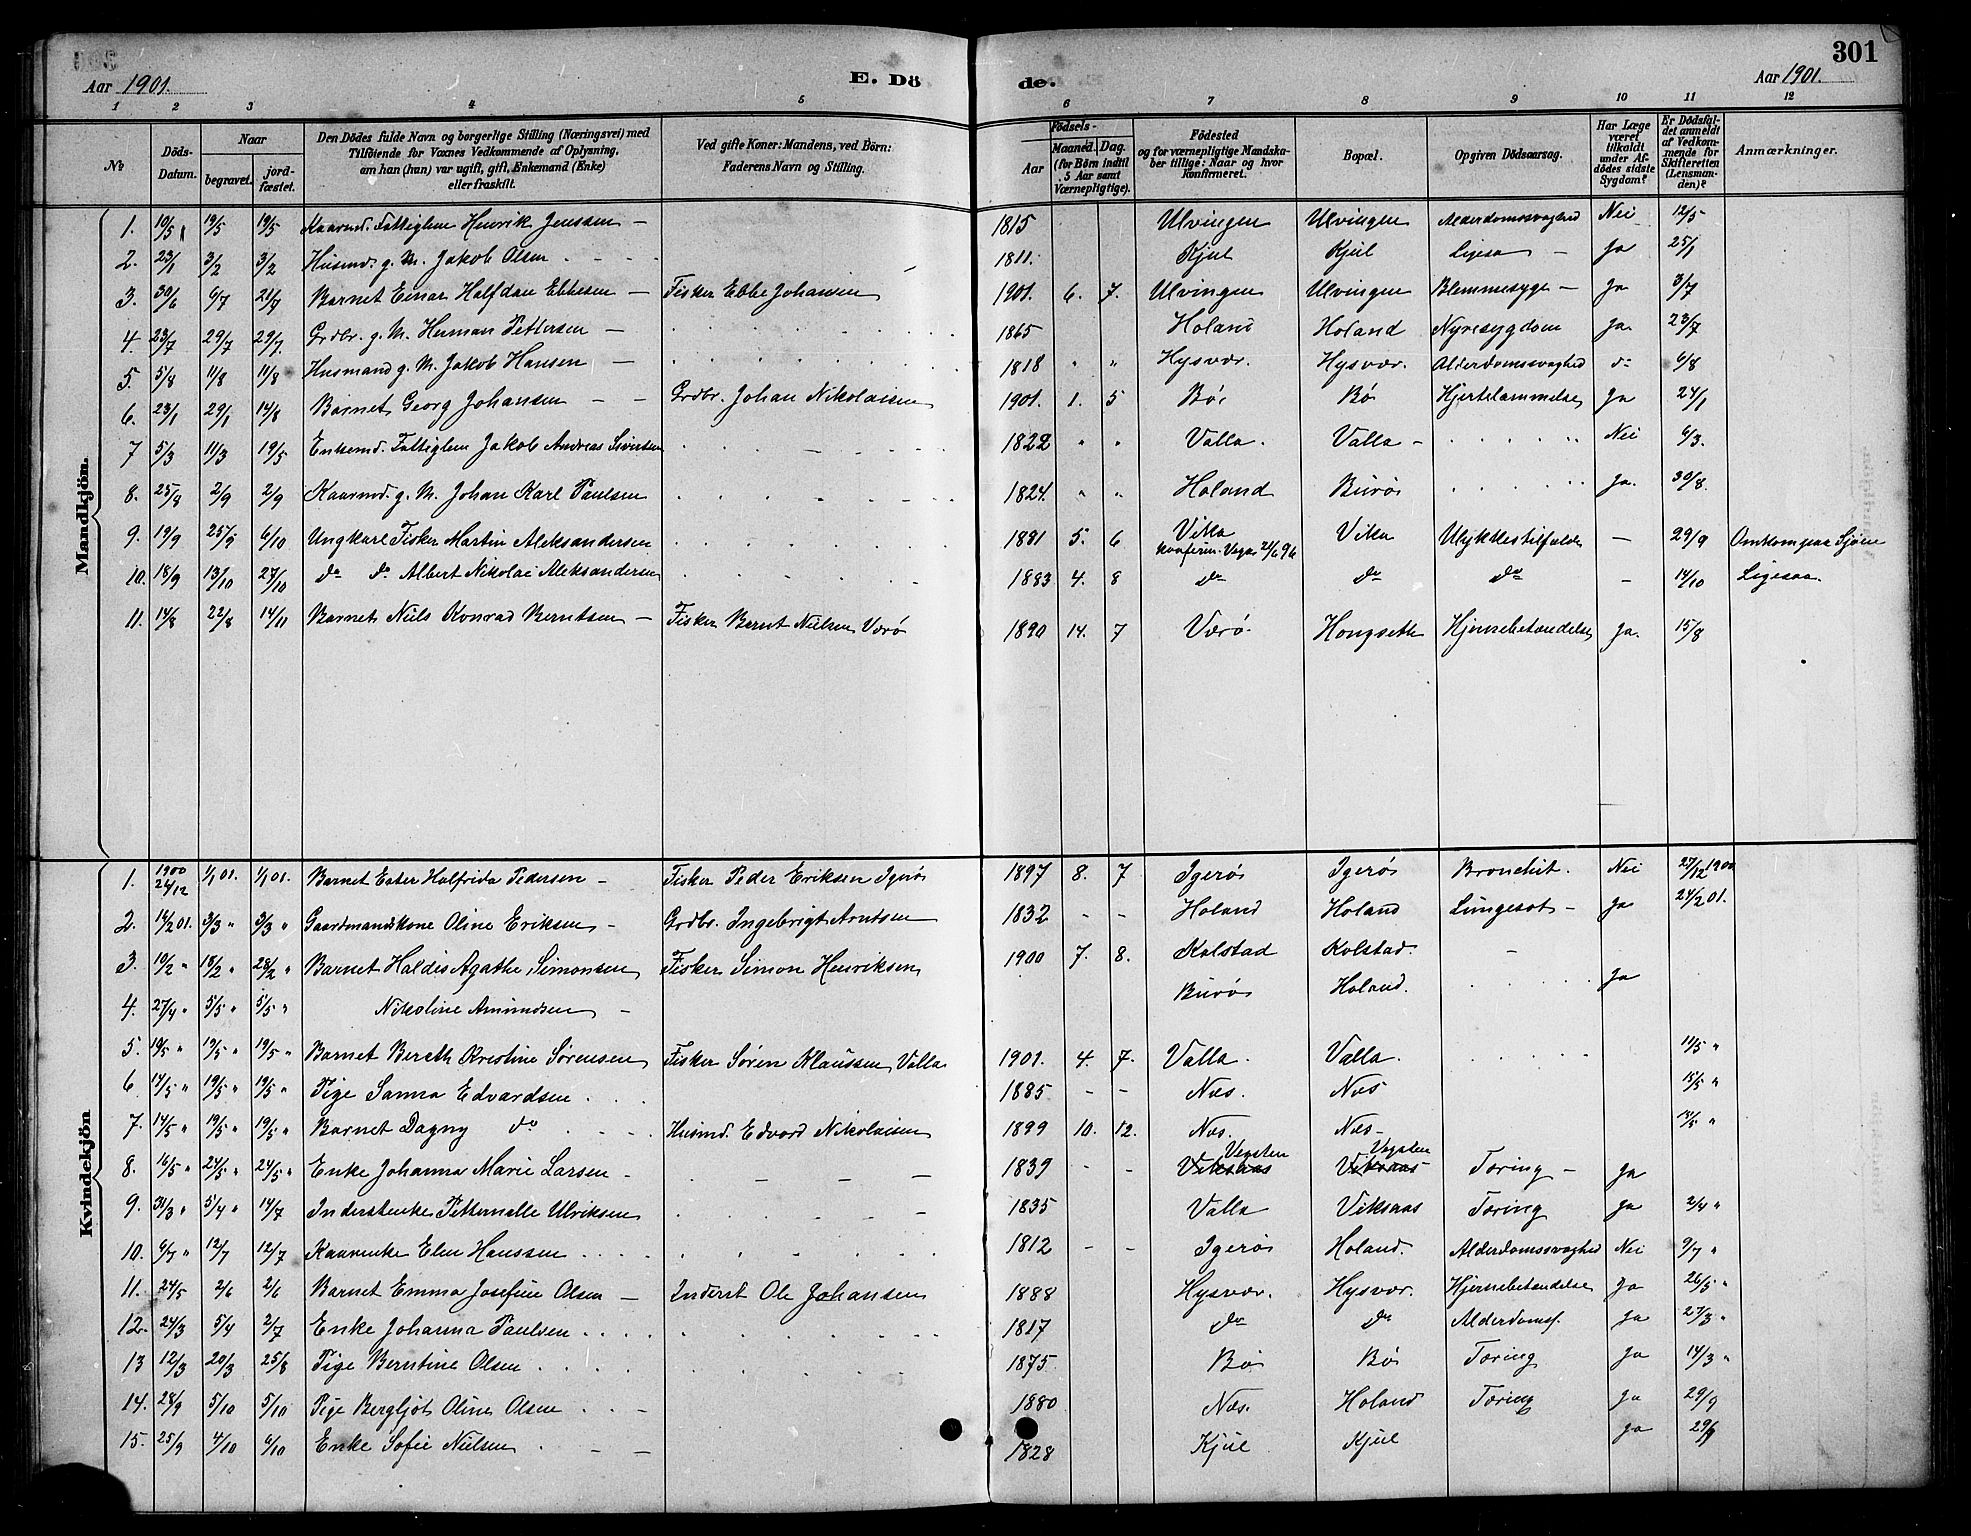 301
Aar 1901. E. Dö de. Aar 1901.
1 2 3 4 5 6 7 8 9 10 11 12
No
Döds-Datum.
Naar
begravet.
jord-fæstet.
Den Dödes fulde Navn og borgerlige Stilling (Næringsvei) med
Tilföiende for Voxnes Vedkommende af Oplysning,
om han (hun) var ugift, gift, Enkemand (Enke)
eller fraskilt.
Ved gifte Koner: Mandens, ved Börn:
Faderens Navn og Stilling.
Födsels-
Aar
Maaned. Dag.
(for Börn indtil
5 Aar samt
Værnepligtige).
Födested
og for værnepligtige Mandska-
ber tillige: Naar og hvor
Konfirmeret.
Bopæl.
Opgiven Dödsaarsag.
Har Læge
været
tilkaldt
under Af-
dödes sidste
Sygdom?
Er Dödsfal-
det anmeldt
af Vedkom-
mende for
Skifteretten
(Lensman-
den)?
Anmærkninger.
Mandkjön.
1. 10/5 19/5 19/5 Kaarmd. Fattiglem Henrik Jenssen – 1815 Ulvingen Ulvingen Alderdomssvaghed Nei 12/5
2. 23/1 3/2 3/2 Husmd. g. M. Jakob Olsen 1811. Kjul Kjul Ligesaa – Ja 25/1
3. 30/6 6/7 21/7 Barnet Einar Halfdan Ebbesen – Fisker Ebbe Johansen 1901. 6. 7. Ulvingen Ulvingen Blemmesyge – Ja 3/7
4. 23/7 29/7 29/7. Grdbr. g. M. Herman Pettersen – 1865 Holand Holand Nyresygdom ja. 23/7
5. 5/8 11/8 11/8 Husmand g. M. Jakob Hansen – 1818 " " Hysvær. Hysvær. Alderdomssvaghed do 6/8
6. 23/1 29/1 14/8 Barnet Georg Johansen – – Grdbr. Johan Nikolaisen 1901. 1. 5 Bø Bø Hjertelammelse Ja 24/1
7 5/3 11/3 19/5 Enkemd. Fattiglem Jakob Andreas Sivertsen 1822 " " Valla. Valla – Nei 6/3.
8. 25/8 2/9 2/9 Kaarmd. g. M. Johan Karl Paulsen 1824. " " Holand Burø ja. 30/8.
9. 19/9 25/9 6/10 Ungkarl Fisker Martin Aleksandersen 1881 5. 6 Vika Vika Ulykkestilfælde – 29/9 Omkom paa Sjøen
konfirm. Vega 21/6 96
10. 18/9 13/10 27/10 do do Albert Nikolai Aleksandersen 1883 4. 8 do do do – 14/10 Ligesaa.
11. 14/8 22/8 14/11 Barnet Nils Konrad Berntsen – Fisker Bernt Nielsen Værø 1890 14. 7 Værø. Hongseth Hjernebetændelse ja. 15/8
Kvindekjön
1. 1900 24/12 1/1 01. 1/1 01. Barnet Ester Halfrida Pedersen – Fisker Peder Eriksen Igerø 1897 8. 7 Igerø Igerø Bronchit. Nei 27/12 1900
2. 14/2 01. 3/3 " 3/3 " Gaardmandskone Oline Eriksen – Grdbr. Ingebrigt Arntsen 1832 – – Holand Holand Lungesot – ja 24/2 01.
3. 10/2 " 18/2 " 28/2 " Barnet Haldis Agathe Simonsen Fisker Simon Henriksen 1900 7. 8. Kolstad Kolstad. –
4. 27/4 " 5/5 " 5/5 " Nikoline Amundsen – Burø Holand. Ja
5. 10/5 " 19/5 " 19/5 " Barnet Kristine Sørensen Fisker Søren Klaussen Valla 1901. 4. 7. Valla. Valla. 11/5 "
6 14/5 " 19/5 " 19/5 " Pige Sanna Edvardsen 1885 – – Næs. Næs 15/5 "
7. 14/5 " 19/5 " 19/5 " Barnet Dagny do Husmd. Edvard Nikolaisen 1899 10. 12. Næs. Næs – 15/5 "
8. 16/5 " 24/5 " 24/5 " Enke Johanna Marie Larsen – 1839 – – Viksaas Vegsten Viksaas Vegsten Tæring – ja
9. 31/3 " 5/4 " 14/7 Inderstenke Petternelle Ulriksen 1835 Valla Viksaas Tæring ja 2/4 "
10. 6/7 " 12/7 12/7 Kaarenke Elen Hanssen 1812 – – Igerø Holand. Alderdomssvaghed Nei 9/7 "
11. 24/5 2/6 2/6 Barnet Emma Josefine Olsen – Inderst Ole Johansen 1888 Hysvær. Hysvær. Hjernebetændelse Ja 26/5 "
12. 24/3 5/4 2/7 Enke Johanna Paulsen 1817 do do Alderdomss. ja 27/3 "
13 12/3 20/3 25/8 Pige Berntine Olsen 1875 Bø Bø Tæring Ja 14/3 "
14. 28/9 5/10 5/10 Pige Bergljot Oline Olsen 1880 Næs. Holand Tæring ja 29/9
15. 25/9 4/10 6/10 Enke Sofie Nielsen 1828 Kjul Kjul ja 29/9